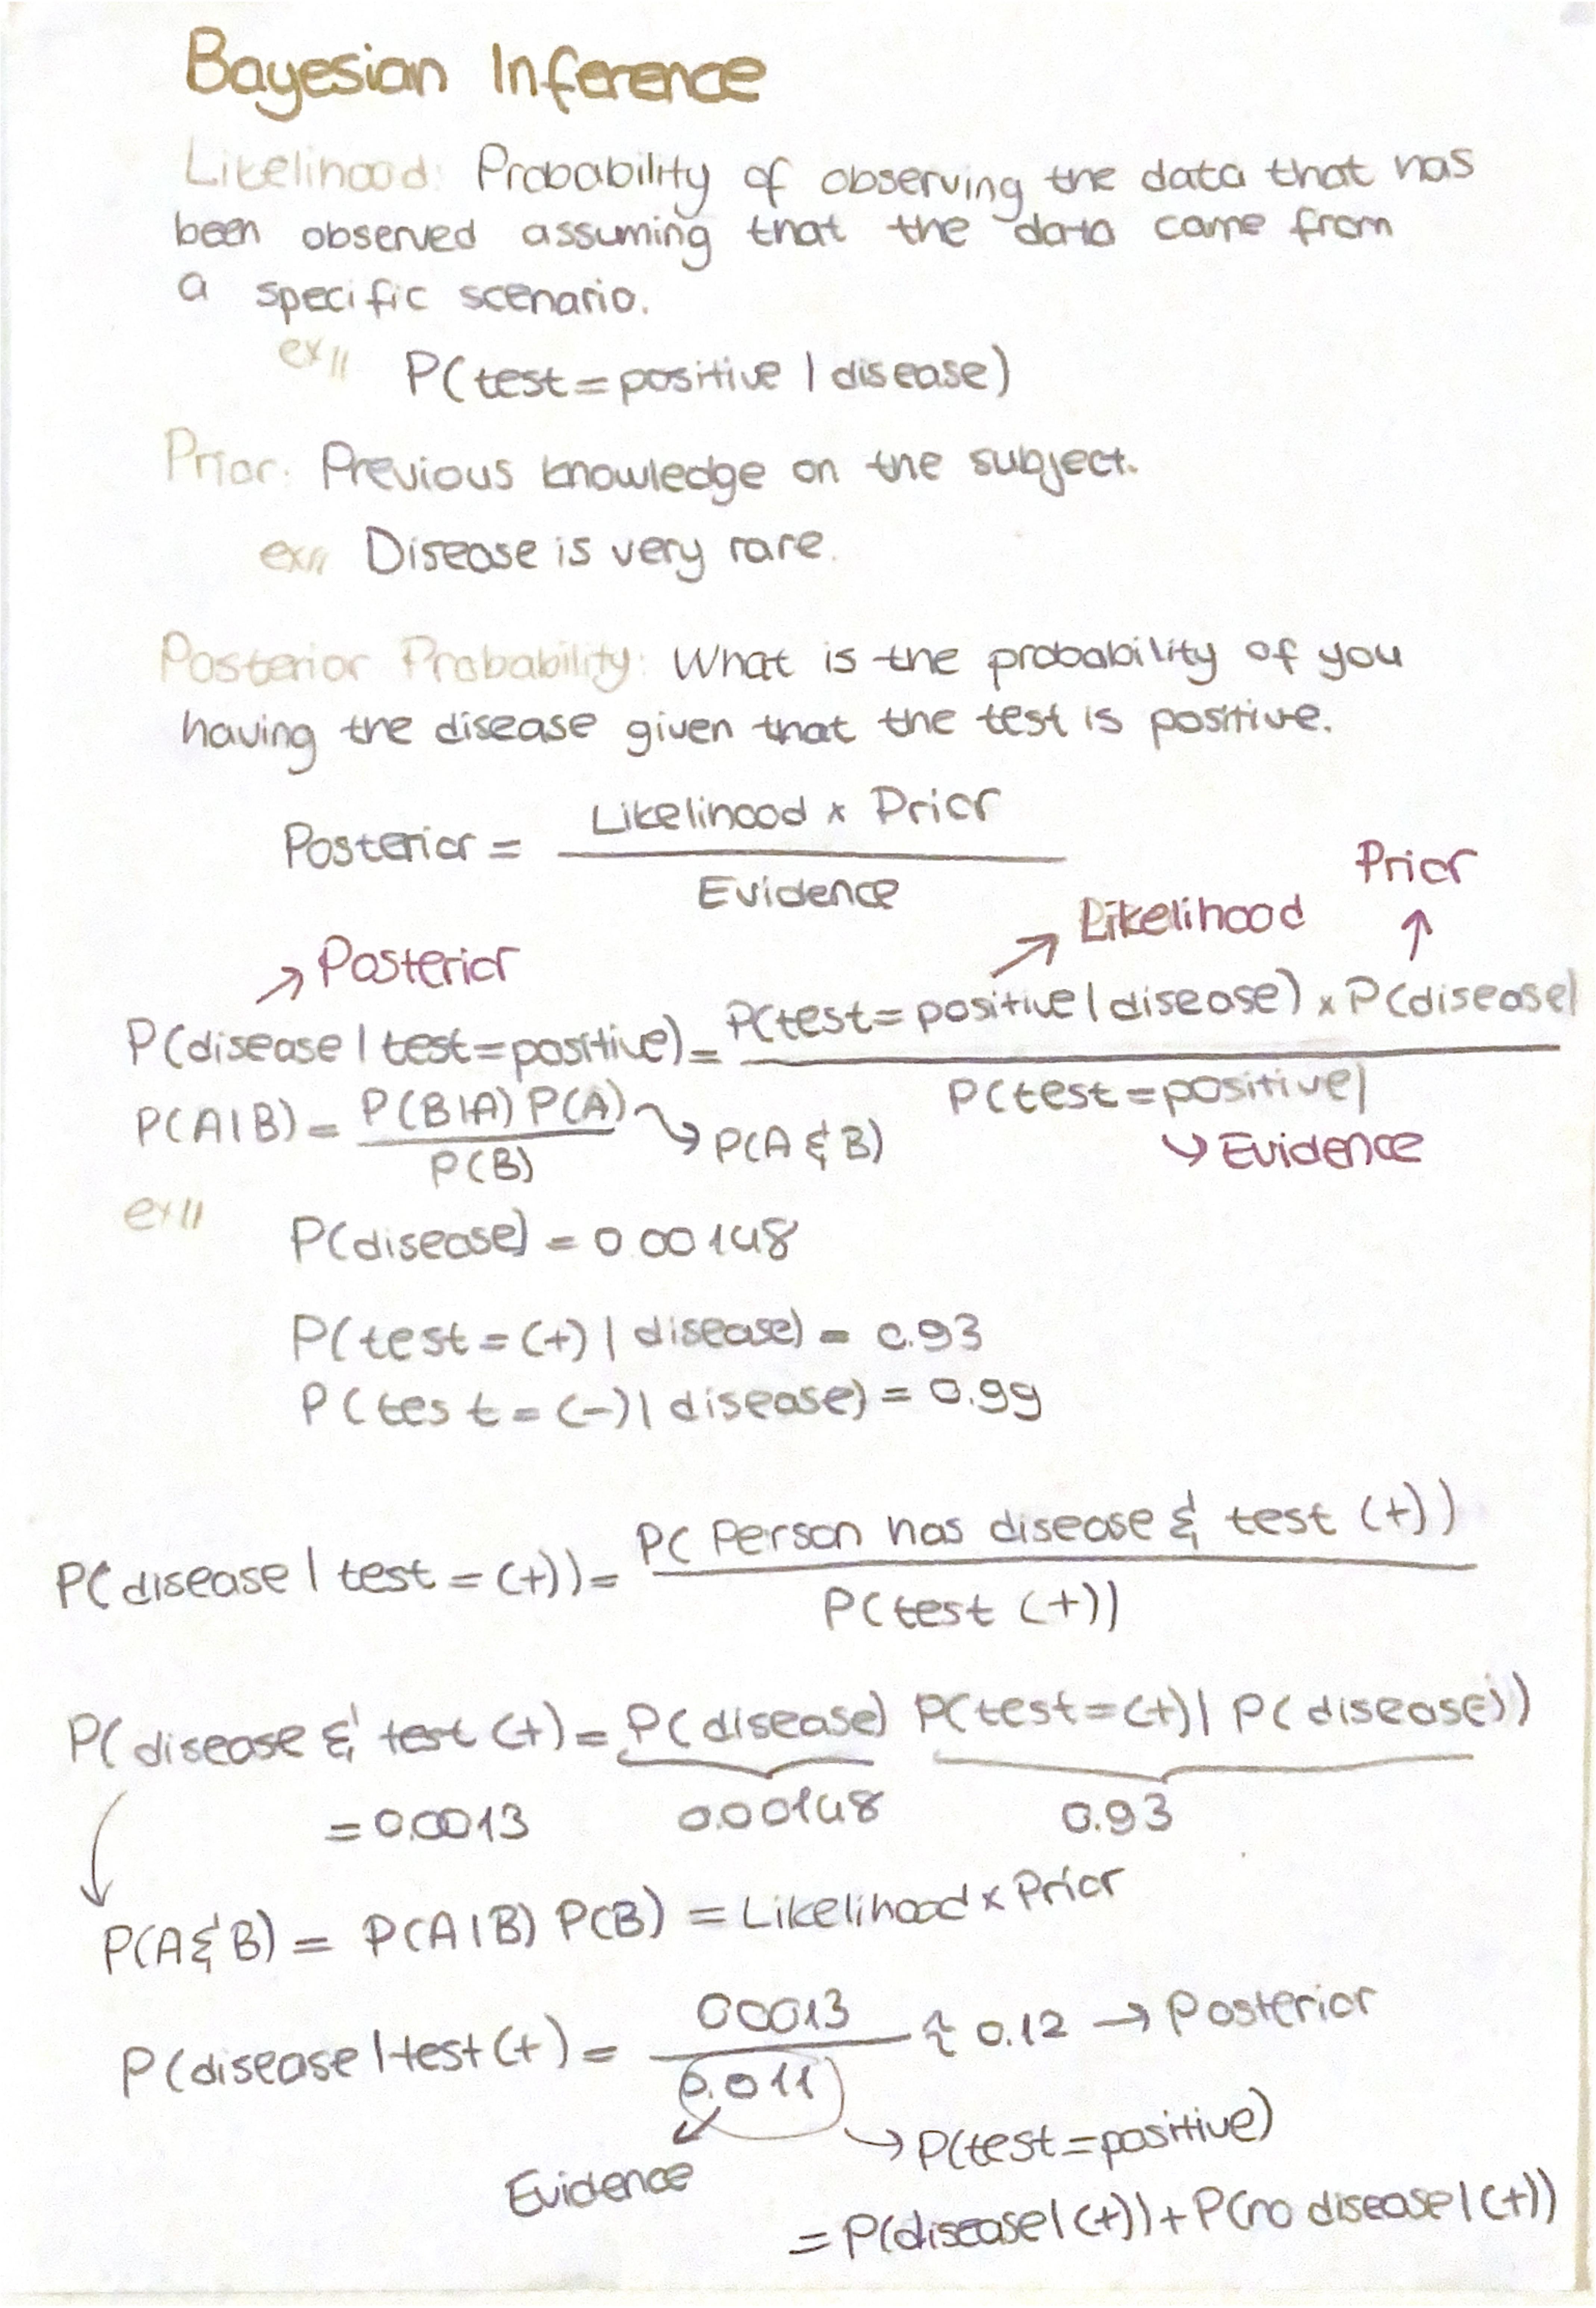 Bayesian Inference
Likelihood: Probability of observing the data that has
been observed assuming that the data came from
a specific scenario.
ex// P(test=positive | disease)
Prior: Previous knowledge on the subject.
ex// Disease is very rare.
Posterior Probability: What is the probability of you
having the disease given that the test is positive.
Posterior = Likelihood x Prior
Evidence
Prior
Likelihood
Posterior
P(disease | test=positive) = P(test=positive | disease) x P(disease)
P(test=positive)
P(A|B) = P(B|A) P(A) → P(A & B)
P(B)
Evidence
ex//
P(disease) = 0.00148
P(test=(+) | disease) = 0.93
P(test=(-) | disease) = 0.99
P(disease | test=(+)) = P( Person has disease & test (+))
P(test (+))
P(disease & test (+) = P(disease) P(test=(+) | P(disease))
= 0.0013 0.00148 0.93
P(A&B) = P(A|B) P(B) = Likelihood x Prior
P(disease | test (+) = 00013 ≈ 0.12 → Posterior
0.011
→ P(test=positive)
Evidence
= P(disease|(+)) + P(no disease|(+))